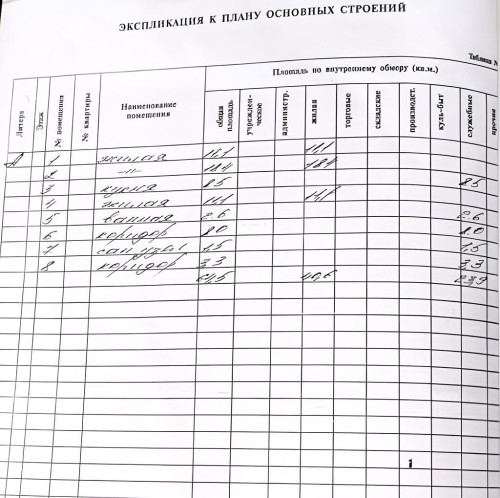 ЭКСПЛИКАЦИЯ К ПЛАНУ ОСНОВНЫХ СТРОЕНИЙ
Таблица №
Литера
Этаж
№ помещения
№ квартиры
Наименование помещения
Площадь по внутреннему обмеру (кв.м.)
общая площадь
учрежден-ческое
администр.
жилая
торговые
складские
производст.
куль-быт
служебные
прочие
А 1 жилая 11,1 11,1
2 –"– 18,4 18,4
3 кухня 8,5 8,5
4 жилая 11,1 11,1
5 ванная 2,6 2,6
6 коридор 8,0 8,0
7 сан узел 1,5 1,5
8 коридор 3,3 3,3
64,5 40,6 23,9
1